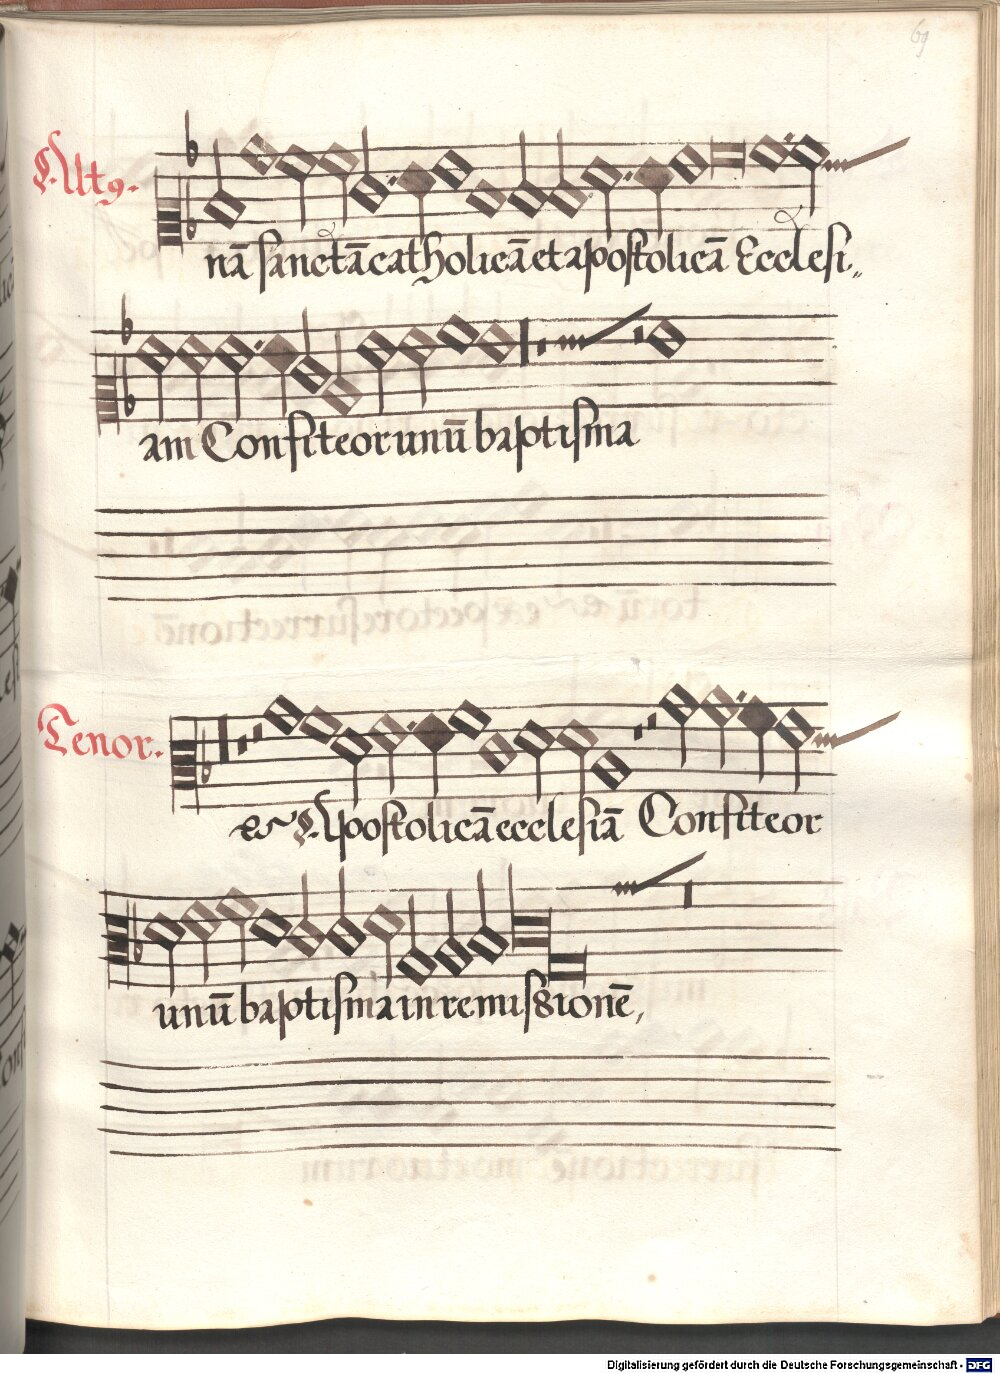 69
Alt9.
nā sanctā catholicā et apostolicā Ecclesi„
am Confiteor unū baptisma
Tenor.
es Apostolicā ecclesiā Confiteor
unū baptisma in remissionē,
Digitalisierung gefördert durch die Deutsche Forschungsgemeinschaft - DFG